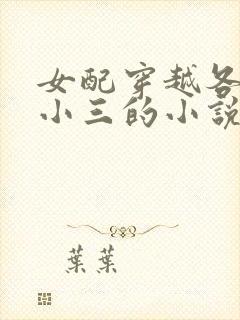 女配穿越各
小三的小說
葉葉